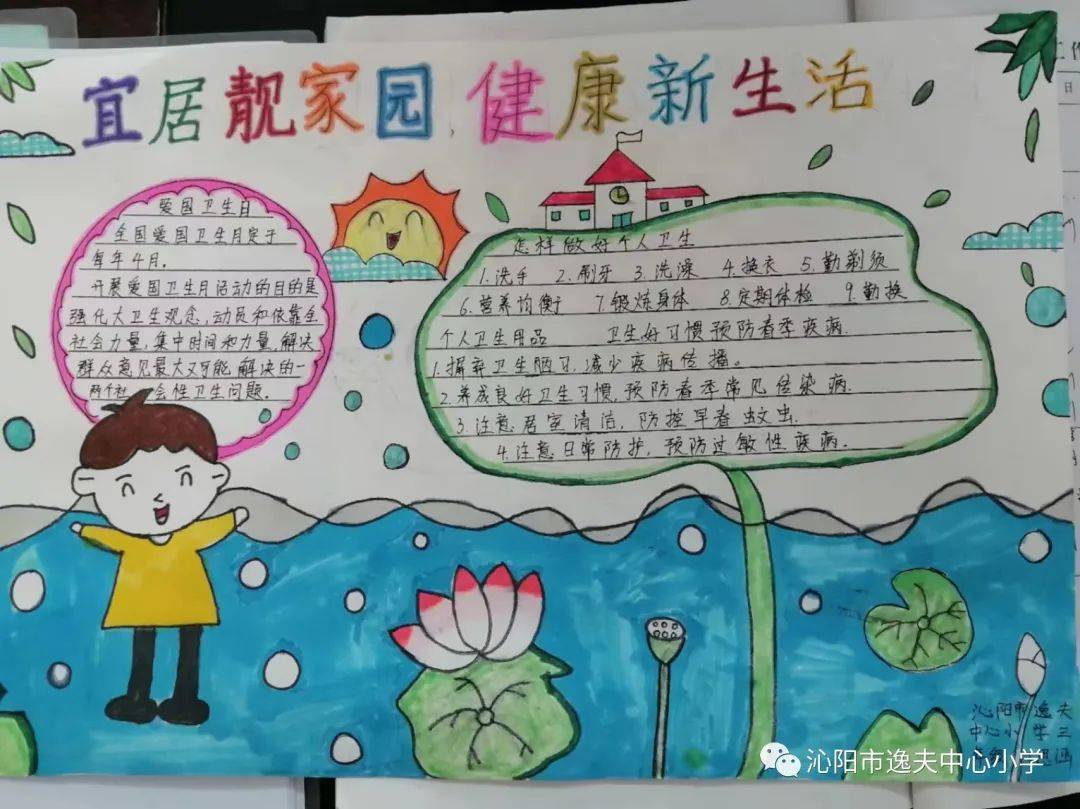 宜居靓家园,健康新生活
爱国卫生日
全国爱国卫生月定于
每年4月.
开展爱国卫生月活动的目的是
强化大卫生观念,动员和依靠全
社会力量,集中时间和力量,解决
群众意见最大又可能解决的一
两个社会性卫生问题.
怎样做好个人卫生
1.洗手 2.刷牙 3.洗澡 4.换衣 5.勤剃须
6.营养均衡 7.锻炼身体 8.定期体检 9.勤换
个人卫生用品 卫生好习惯预防春季疾病.
1.摒弃卫生陋习,减少疾病传播。
2.养成良好卫生习惯,预防春季常见传染病.
3.注意居室清洁,防控早春蚊虫.
4.注意日常防护,预防过敏性疾病.
沁阳市逸夫
中心小学三
沁阳市逸夫中心小学